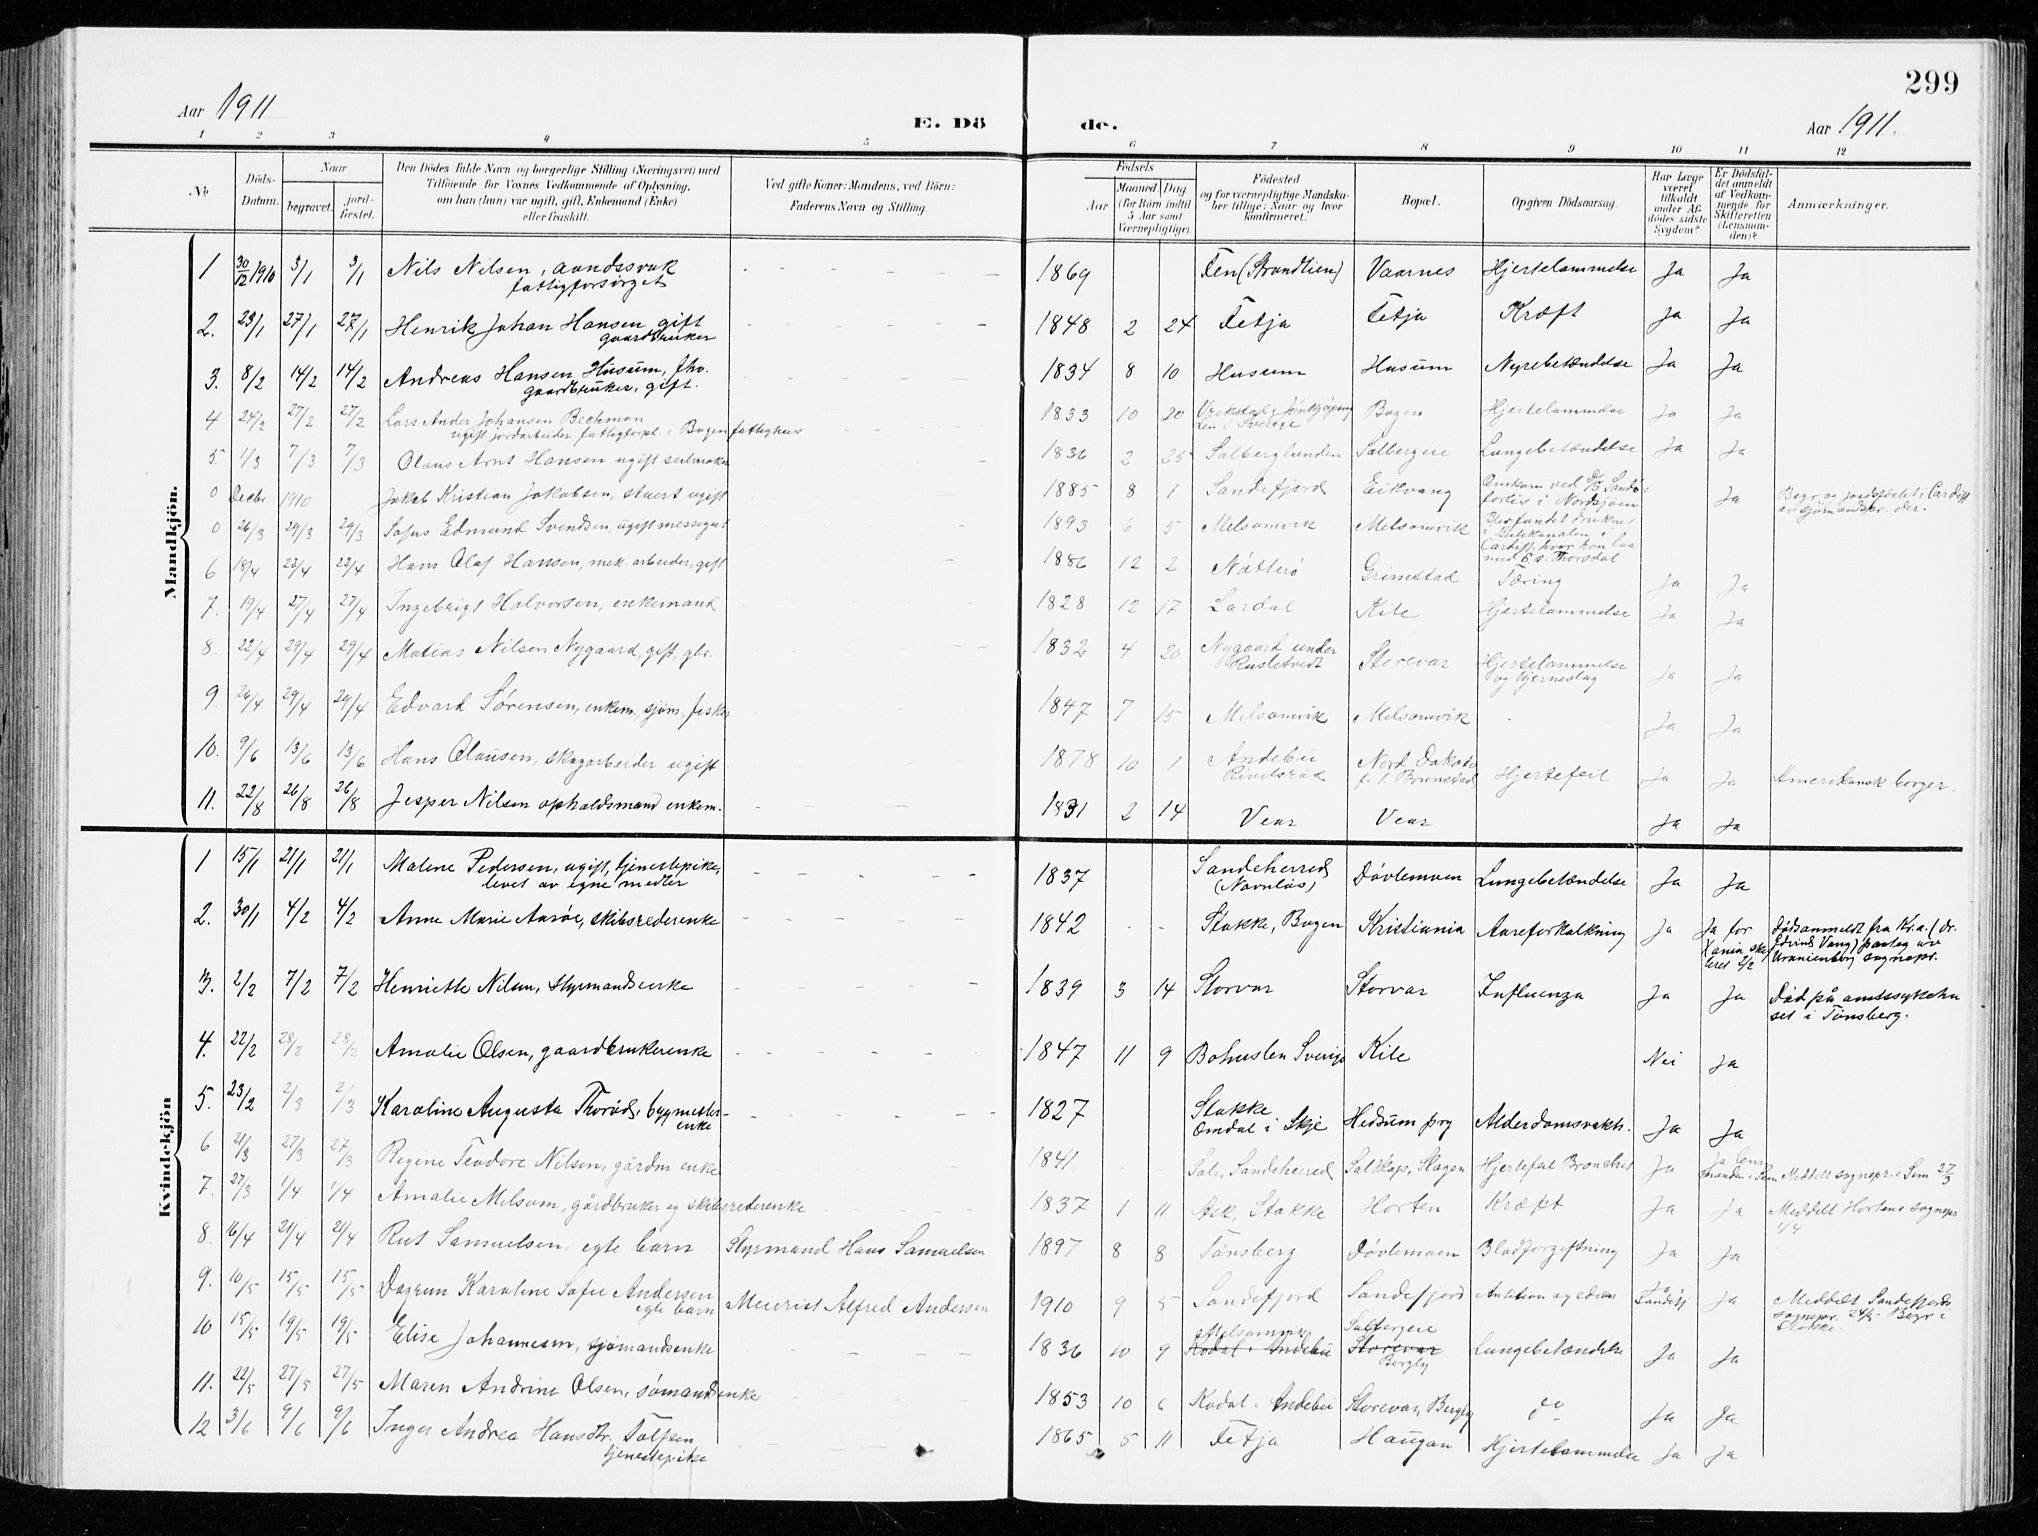 299
Aar 1911
E. Dö
de.
Aar 1911.
1 2 3 4 5 6 7 8 9 10 11 12
No
Döds-Datum.
Naar
begravet.
jord-fæstet.
Den Dödes fulde Navn og borgerlige Stilling (Næringsvei) med
Tilföiende for Voxnes Vedkommende af Oplysning,
om han (hun) var ugift, gift, Enkemand (Enke)
eller fraskilt.
Ved gifte Koner: Mandens, ved Börn:
Faderens Navn og Stilling.
Födsels
Aar
Maaned Dag
(for Börn indtil
5 Aar samt
Værnepligtige).
Födested
og for værnepligtige Mandska-
ber tillige: Naar og hvor
konfirmeret.
Bopæl.
Opgiven Dödsaarsag.
Har Læge
været
tilkaldt
under Af-
dödes sidste
Sygdom?
Er Dödsfal-
det anmeldt
af Vedkom-
mende for
Skifteretten
(Lensman-
den)?
Anmærkninger.
Mandkjön.
1 30/12 1910 3/1 3/1 Nils Nilsen, aandssvak 1869 Fen (Strandlien) Vaarnes Hjertelammelse Ja Ja
fattigforsørget
2. 23/1 27/1 27/1 Henrik Johan Hansen, gift 1848 2 24 Fetja Fetja Kræft Ja Ja
gaardbruker
3. 8/2 14/2 14/2 Andreas Hansen Husum, fhv. 1834 8 10 Husum Husum Nyrebetændelse Ja Ja
gaardbruker, gift.
4 24/2 27/2 27/2 Lars Ander Johansen Beckman 1833 10 20 Vrikstad, Jönkjöping Bogen Hjertelammelse Ja Ja
ugift jordarbeider fattigforpl. i Bogen fattighus
len i Sverige
5. 1/3 7/3 7/3 Olaus Arnt Hansen ugift seilmaker 1836 2 25 Solberglunden Solbergeie Lungebetændelse Ja Ja
0 Decbr 1910 Jakob Kristian Jakobsen, stuert ugift 1885 8 1 Sandefjord Eikvang Omkom ved D/S Sande- Ja Begr. og jordfæstet i Cardiff
fortis i Nordsjøen
av sjømandspr. der.
0 26/3 29/3 29/3 Sofus Edmund Svendsen, ugift messegut 1893 6 5 Melsomvik Melsomvik Blev fundet druknet
i Butekanalen i
Cardiff, hvor han laa
med S.s. Thorsdal
6 18/4 23/4 23/4 Hans Olaf Hansen, mek. arbeider, gift 1886 12 2 Nötterö Grimestad Tæring Ja Ja
7. 19/4 27/4 27/4 Ingebrigt Halvorsen, enkemand 1828 12 17 Lardal Kile Hjertelammelse Ja Ja
8. 22/4 29/4 29/4 Matias Nilsen Nygaard, gift, gbr. 1832 4 20 Nygaard under Storevar Hjertelammelse Ja Ja
og hjerneslag
9. 26/4 29/4 29/4 Edvard Sørensen, enkem. sjöm, fisker 1847 7 15 Melsomvik Melsomvik Ja Ja
10. 9/6 13/6 13/6 Hans Olausen, skogarbeider ugift 1878 10 1 Andebu Nord Dakota Hjertefeil Ja Ja Amerikansk borger.
f. i. Brunstad
11. 22/8 26/8 26/8 Jesper Nilsen opholdsmand enkem. 1831 2 14 Vear Vear Ja Ja
Kvindekjön
1 15/1 21/1 21/1 Malene Pedersen, ugift, tjenestepike, 1837 Sandeherred Dövlemoen Lungebetændelse Ja Ja
levet av egne medler
(Navnløs)
2. 30/1 4/2 4/2 Anne Marie Aaröe, skibsrederenke 1842 Stokke, Bogen Kristiania Aareforkalkning Ja Ja for Dödsanmeldt fra Kr.a. (dr.
Edvind Vang) paateg av
Uranienborg sognepr.
3. 2/2 7/2 7/2 Henriette Nilsen, styrmandsenke 1839 3 14 Storvar Storvar Influenza Ja Ja Död på amtssykehu
set i Tönsberg.
4. 22/2 28/2 28/2 Amalie Olsen, gaardbrukerenke 1847 11 9 Bohuslen Sverige Kile Nei Ja
5. 23/2 2/3 2/3 Karoline Augusta Thorød, bygmester- 1827 Stokke Hedsum prg Alderdomsvakh. Ja Ja
enke
Omdal i Skje
6 21/3 27/3 27/3 Regine Teodore Nilsen, gårdm enke 1841 Sole, Sandeherred Solskap, Slagen Hjertefeil Bronchit Ja Ja lens
manden i Sem Meddelt sognepr. i Sem 27/3
7. 27/3 1/4 1/4 Amalie Melsom, gårdbruker og skibsrederenke 1837 1 11 Ask, Stokke Horten Kræft Ja Ja Meddelt Hortens sognepr
1/4
8. 16/4 21/4 21/4 Rut Samuelsen, egte barn Styrmand Hans Samuelsen 1897 8 8 Tönsberg Dövlemoen Blodforgiftning Ja Ja
9. 10/5 15/5 15/5 Dagrun Karoline Sofie Andersen Meierist Alfred Andersen 1910 9 5 Sandefjord Sandefjord Ja Meddelt Sandefjords
egte barn
sognepr. 24/5. Begr i
Stokke.
10 15/5 19/5 19/5 Elise Johannesen, sjömandsenke 1836 10 9 Melsomvik Solbergeie Lungebetændelse Ja Ja
Kodal i Andebu Storevar
Bergly
11. 22/5 27/5 27/5 Maren Andrine Olsen, sömandsenke 1853 10 6 Kodal i Andebu Storevar, Bergly do Ja Ja
12 3/6 9/6 9/6 Inger Andrea Hansdtr. Tolfsen 1865 5 11 Fetja Haugan Hjertelammelse Ja Ja
tjenestepike